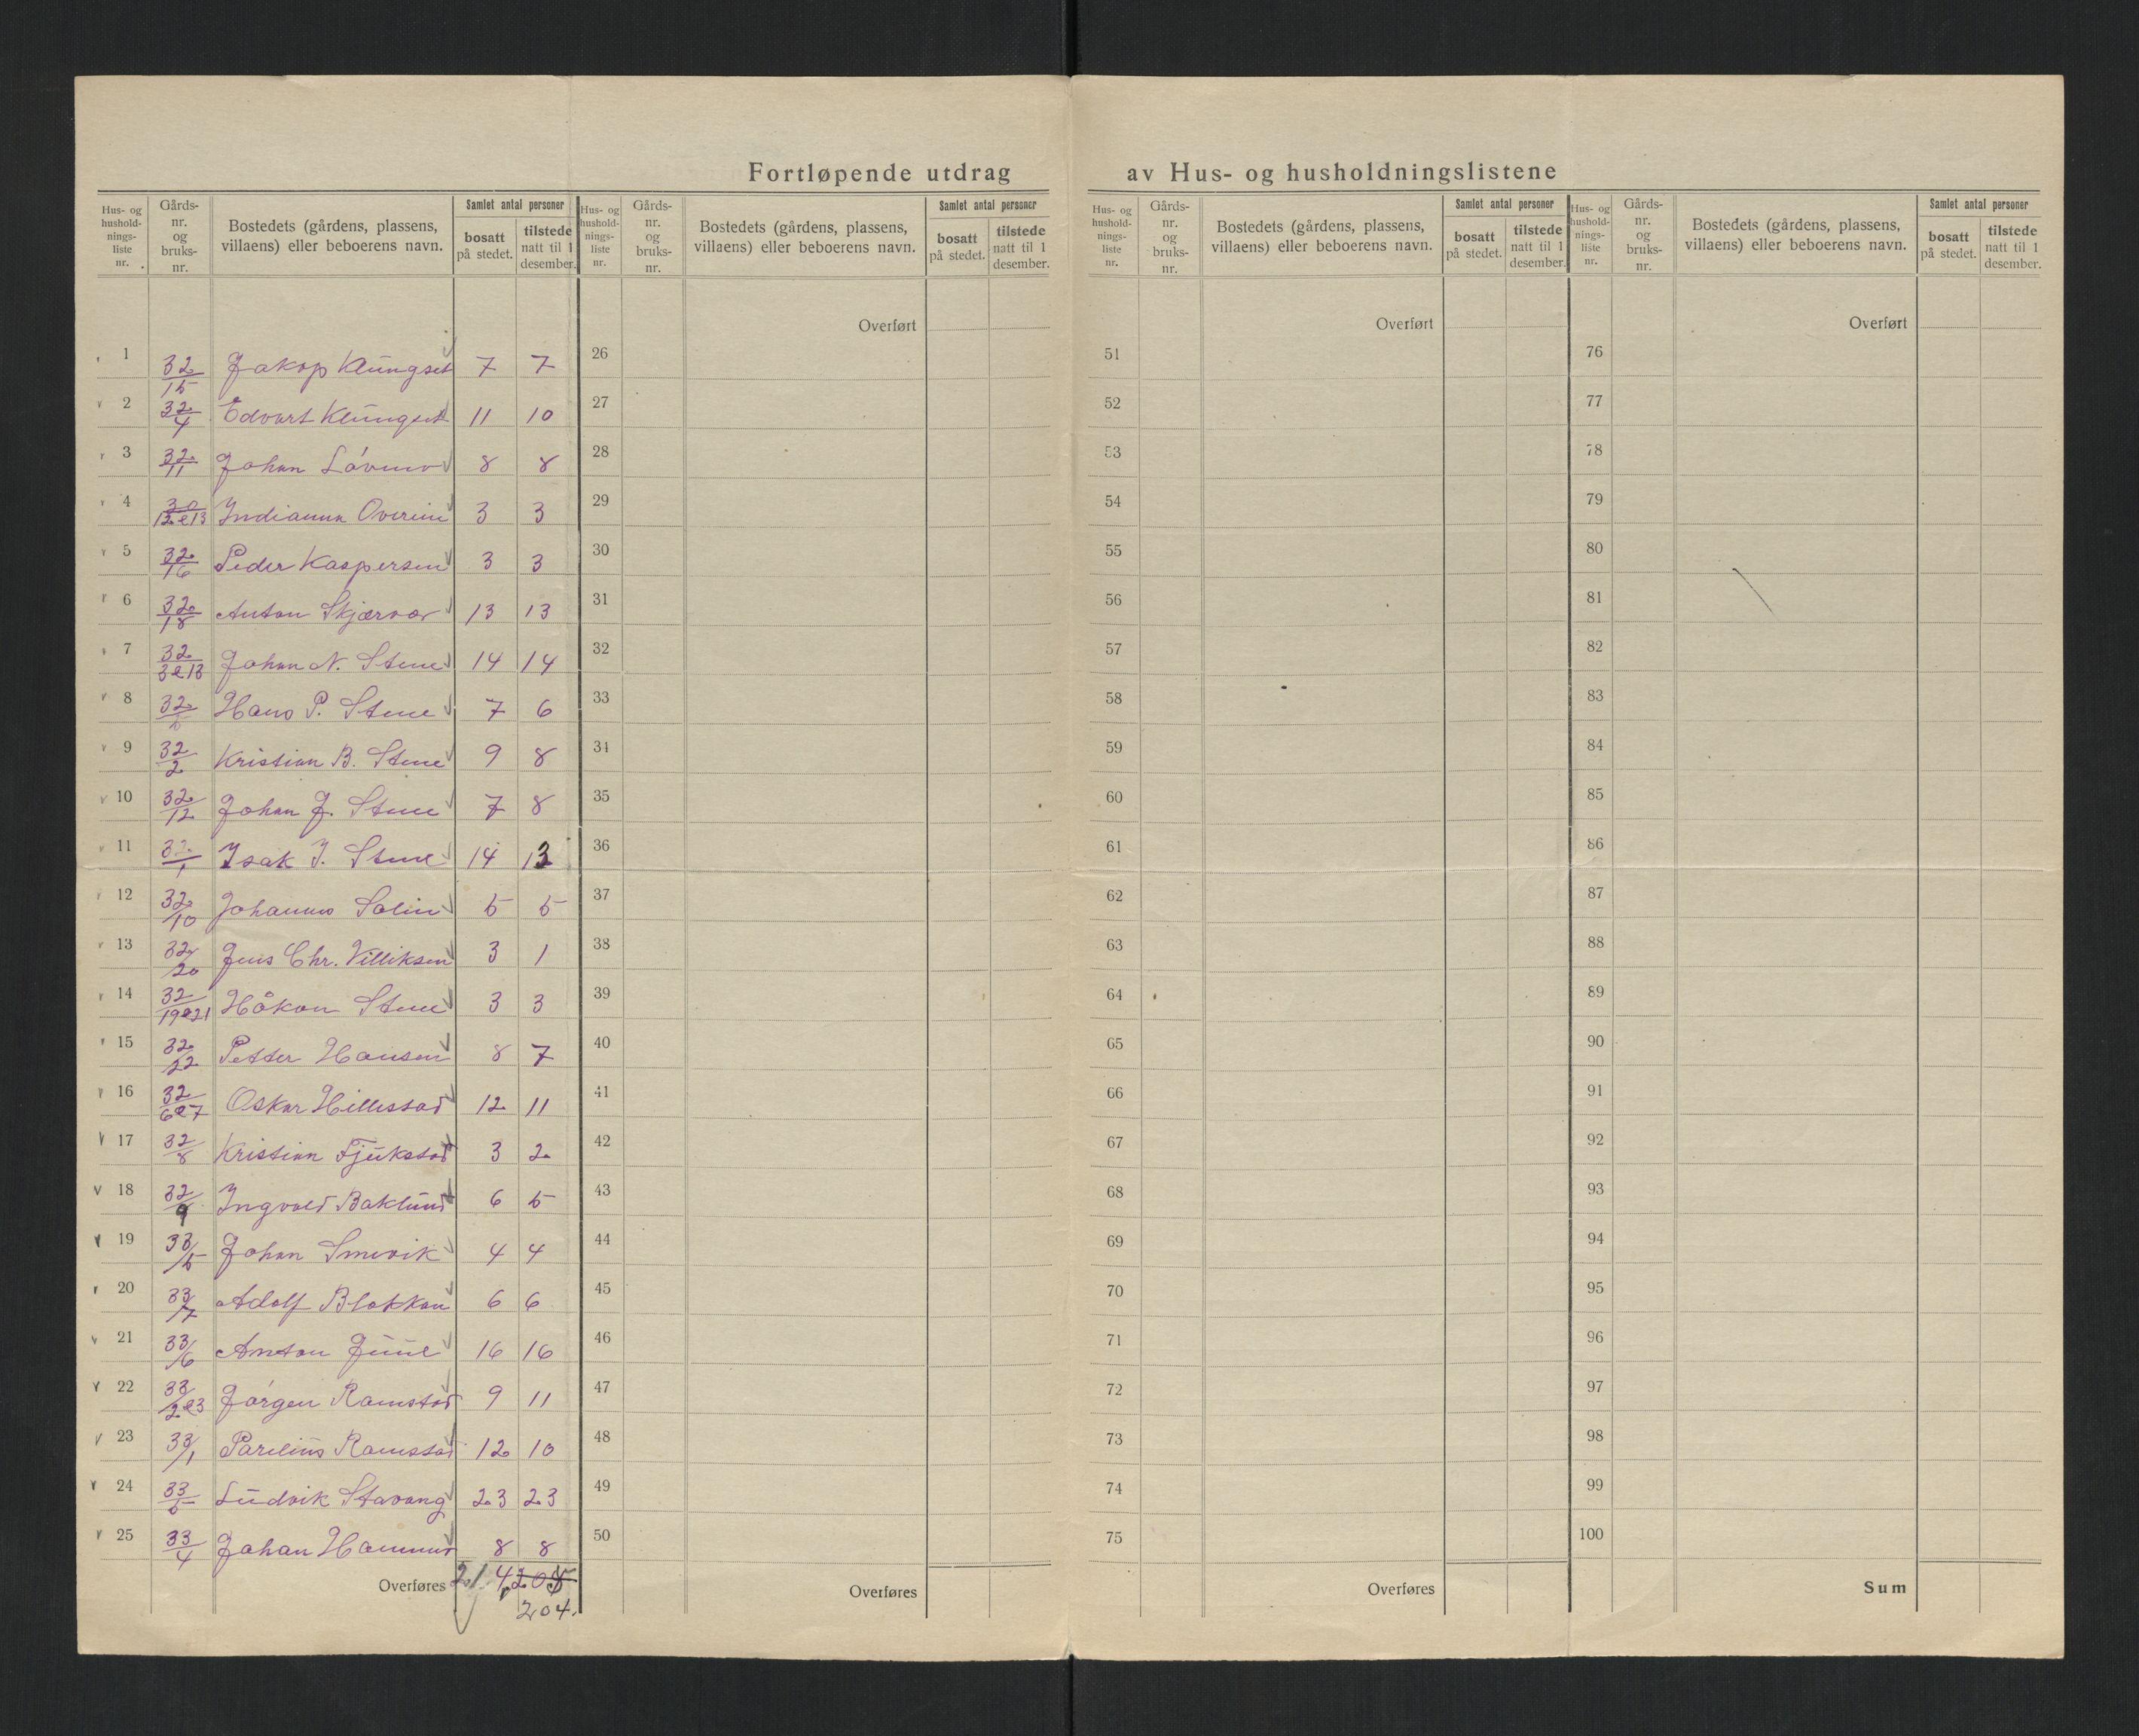 Fortløpende utdrag av Hus- og husholdningslistene
Hus- og hushold-nings-liste nr. Gårds-nr. og bruks-nr. Bostedets (gårdens, plassens, villaens) eller beboerens navn. Samlet antal personer bosatt på stedet. tilstede natt til 1 desember.
Hus- og hushold-nings-liste nr. Gårds-nr. og bruks-nr. Bostedets (gårdens, plassens, villaens) eller beboerens navn. Samlet antal personer bosatt på stedet. tilstede natt til 1 desember.
Hus- og hushold-nings-liste nr. Gårds-nr. og bruks-nr. Bostedets (gårdens, plassens, villaens) eller beboerens navn. Samlet antal personer bosatt på stedet. tilstede natt til 1 desember.
Hus- og hushold-nings-liste nr. Gårds-nr. og bruks-nr. Bostedets (gårdens, plassens, villaens) eller beboerens navn. Samlet antal personer bosatt på stedet. tilstede natt til 1 desember.
Overført Overført Overført
1 32/15 Jakop Klüngset 7 7 26 51 76
2 32/4 Edvart Klüngset 11 10 27 52 77
3 32/11 Johan 8 8 28 53 78
4 Indianna 3 3 29 54 79
5 32/16 Peder Kaspersen 3 3 30 55 80
6 32/18 Anton Skjærvær 13 13 31 56 81
7 32 Johan N. Stene 14 14 32 57 82
8 32 Hans P. Stene 7 6 33 58 83
9 32/2 Kristian B. Stene 9 8 34 59 84
10 32/12 Johan J. Stene 7 8 35 60 85
11 32/1 Isak J. Stene 14 13 36 61 86
12 32/10 Johannes Solin 5 5 37 62 87
13 32/20 Jens Chr. Villiksen 3 1 38 63 88
14 32/19&21 Håkon Stene 3 3 39 64 89
15 32/22 Petter Hansen 8 7 40 65 90
16 32/6&7 Oskar Hillestad 12 11 41 66 91
17 32/8 Kristian Fjükstad 3 2 42 67 92
18 32/9 Ingvald Baklünd 6 5 43 68 93
19 33/5 Johan Smevik 4 4 44 69 94
20 33/7 Adolf Blokkan 6 6 45 70 95
21 33/6 Anton Jüül 16 16 46 71 96
22 33/2&3 Jørgen Ramstad 9 11 47 72 97
23 33/1 Pareliüs Ramstad 12 10 48 73 98
24 33 Lüdvik Stavang 23 23 49 74 99
25 33/4 Johan Hammer 8 8 50 75 100
Overføres 214 205 Overføres Overføres Sum
204.